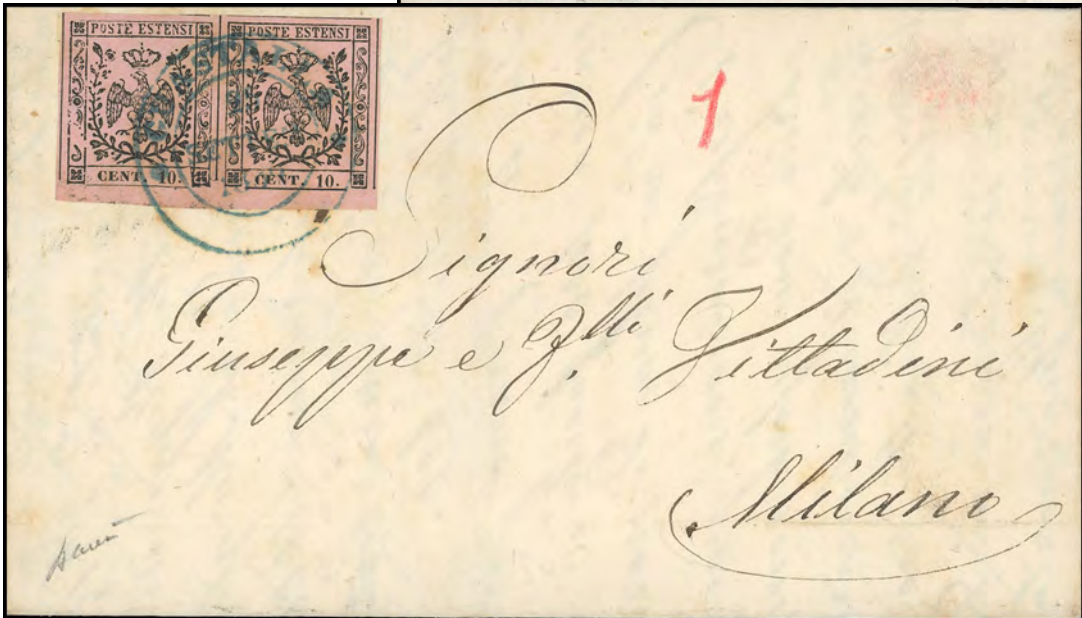 POSTE ESTENSI POSTE ESTENSI
CENT. 10. CENT. 10.
1
Signori
Giuseppe e Flli Vittadini
Milano